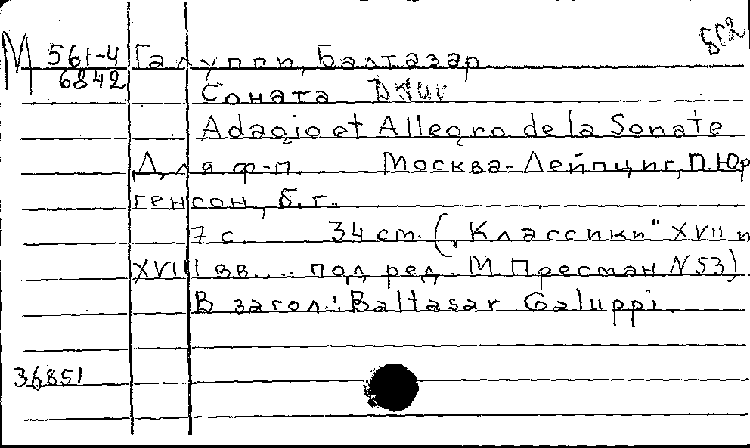 М 561-4 Галуппи, Балтазар
6842
Соната D dur
Adagio et Allegro de la Sonate
Для ф-п. Москва-Лейпциг, П. Юр
генсон, б.г.
7 с. 34 cm („Классики" XVII и
XVIII вв.... под ред. М. Пресман N 53)
В загол: Baltasar Galuppi.
36851